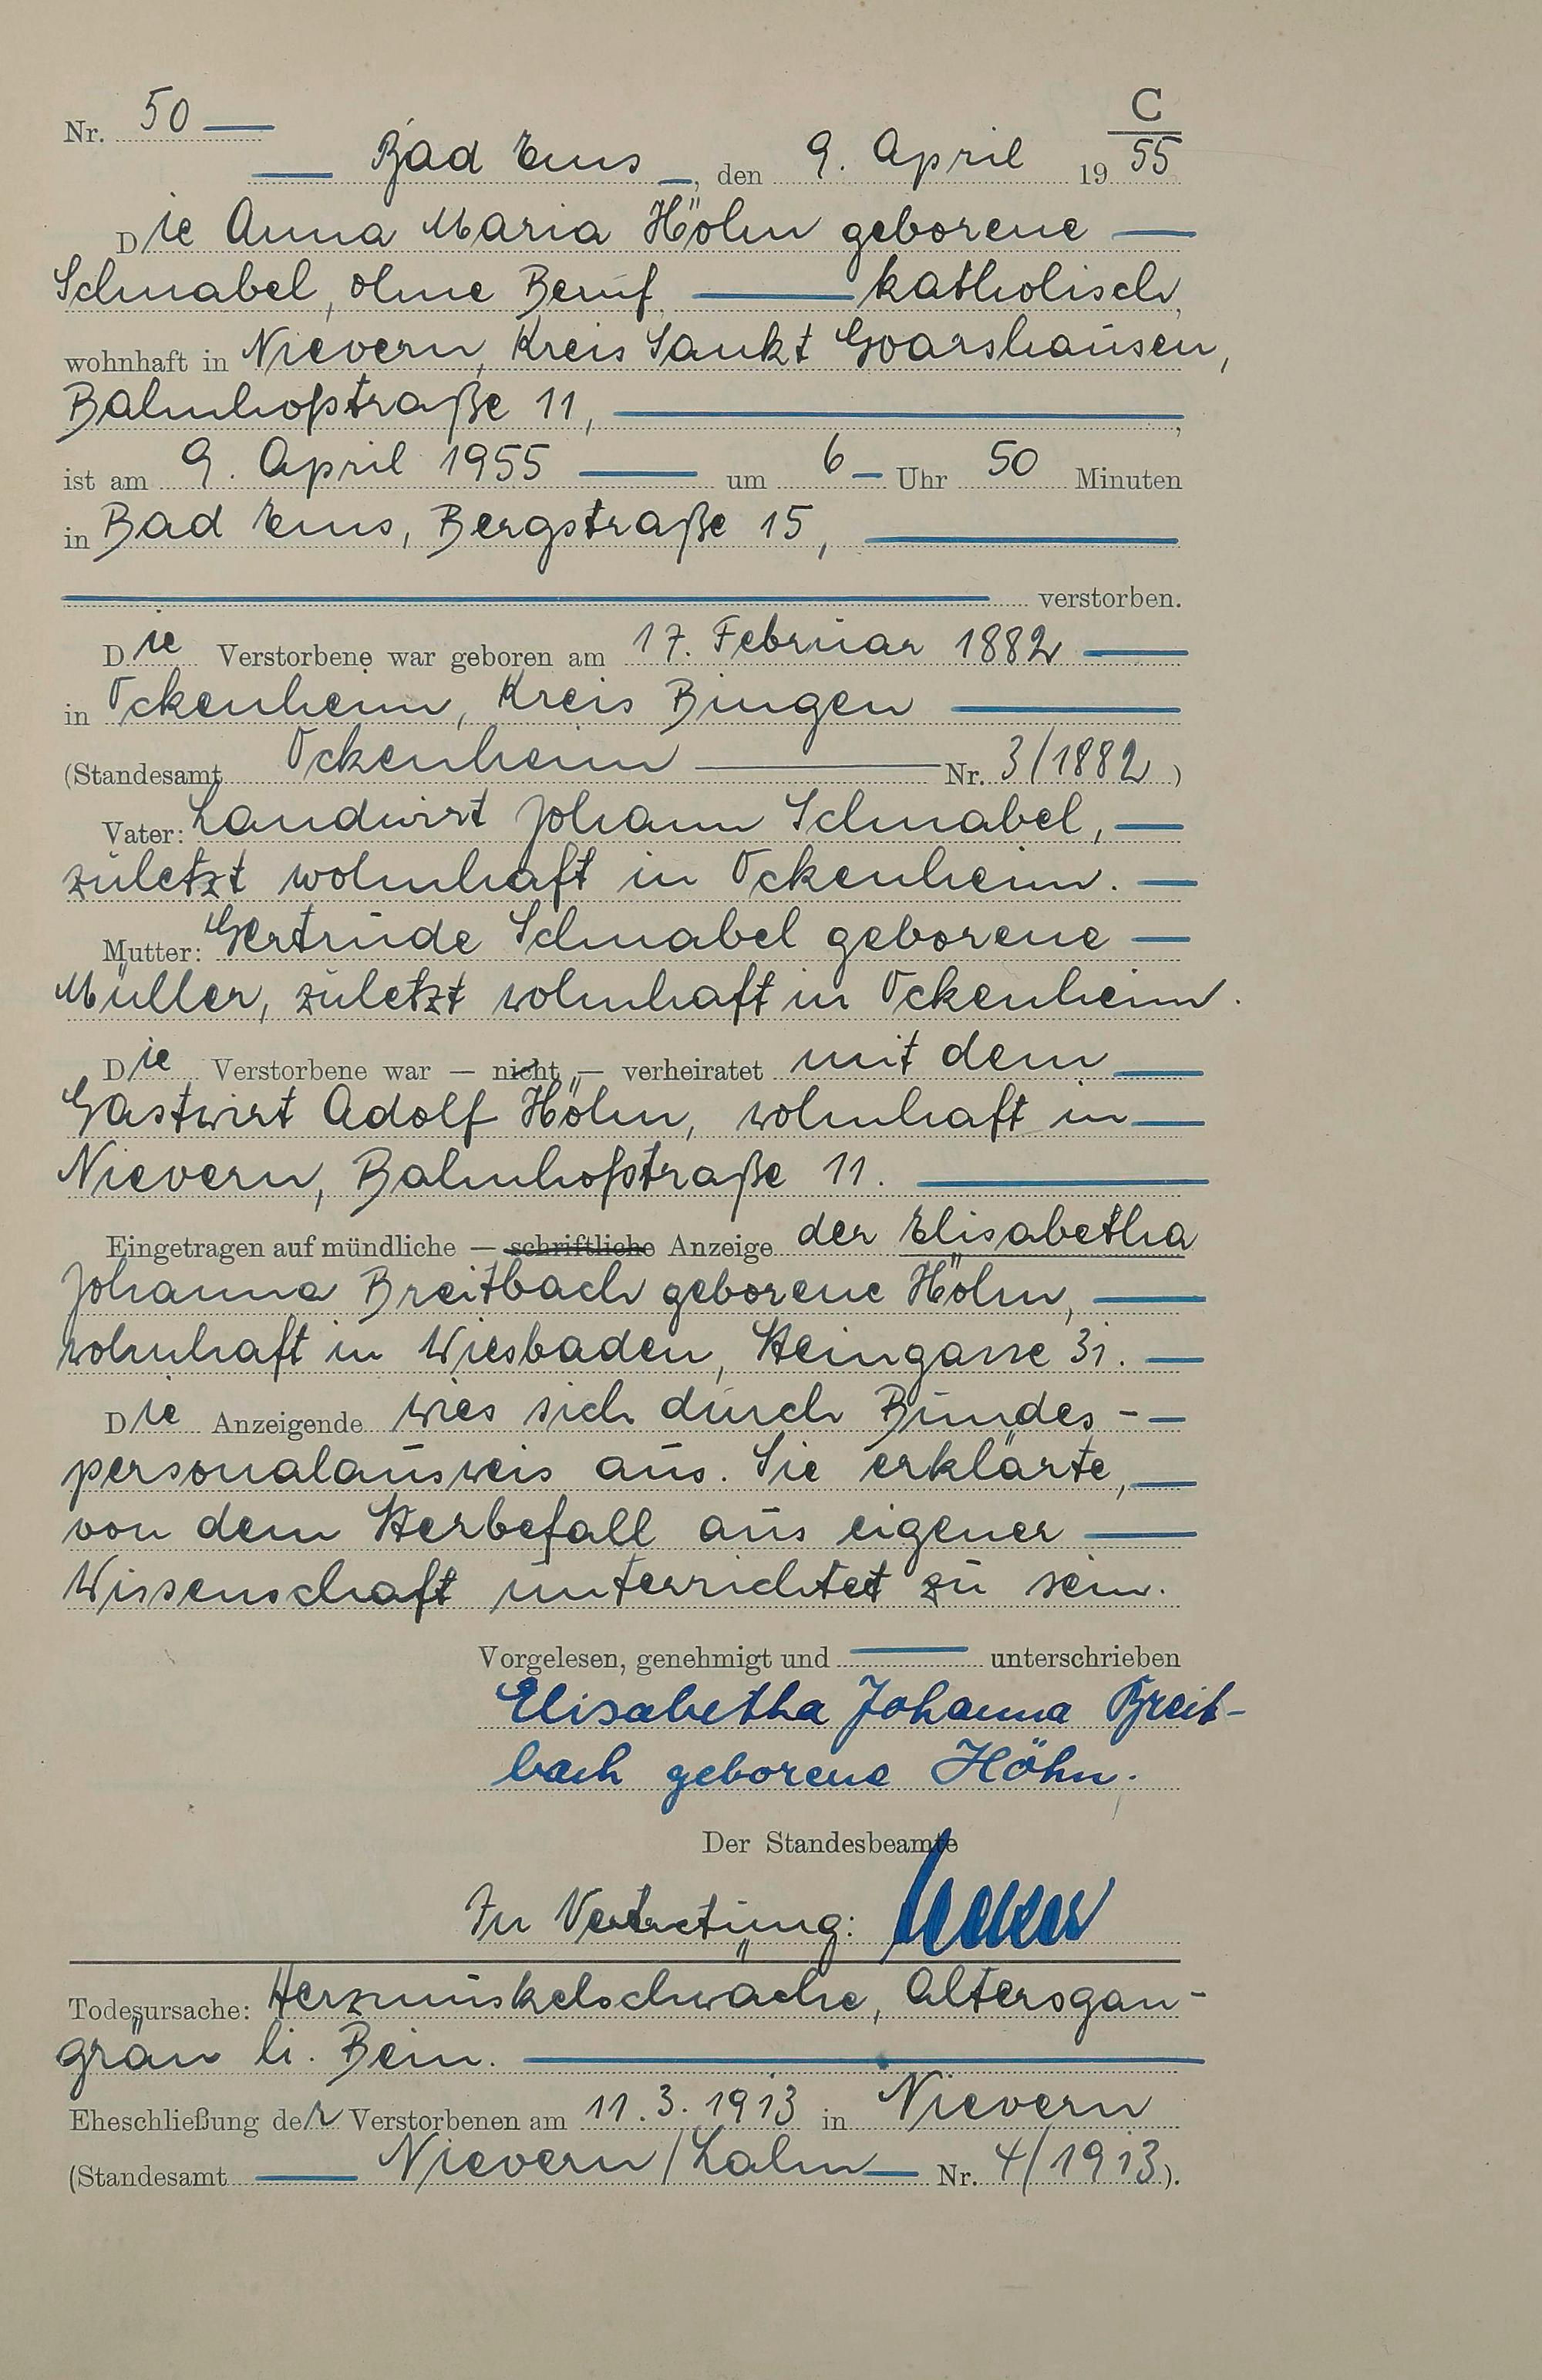 C
Nr. 50 —
— Bad Ems —, den 9. April 1955
Die Anna Maria Höhn geborene —
Schnabel, ohne Beruf, — katholisch,
wohnhaft in Nievern, Kreis Sankt Goarshausen,
Bahnhofstraße 11, —,
ist am 9. April 1955 — um 6 — Uhr 50 Minuten
in Bad Ems, Bergstraße 15, —
— verstorben.
Die Verstorbene war geboren am 17. Februar 1882 —
in Ockenheim, Kreis Bingen —
(Standesamt Ockenheim — Nr. 3/1882)
Vater: Landwirt Johann Schnabel, —
zuletzt wohnhaft in Ockenheim. —
Mutter: Gertrude Schnabel geborene —
Müller, zuletzt wohnhaft in Ockenheim.
Die Verstorbene war — nicht — verheiratet mit dem —
Gastwirt Adolf Höhn, wohnhaft in —
Nievern, Bahnhofstraße 11. —
Eingetragen auf mündliche — schriftliche Anzeige der Elisabetha
Johanna Breitbach geborene Höhn, —
wohnhaft in Wiesbaden, Steingasse 31. —
Die Anzeigende wies sich durch Bundes- —
personalausweis aus. Sie erklärte, —
von dem Sterbefall aus eigener —
Wissenschaft unterrichtet zu sein.
Vorgelesen, genehmigt und — unterschrieben
Elisabetha Johanna Breit-
bach geborene Höhn.
Der Standesbeamte
In Vertretung:
Todesursache: Herzmuskelschwäche, Altersgan-
grän li. Bein. —
Eheschließung der Verstorbenen am 11.3.1913 in Nievern
(Standesamt — Nievern/Lahn — Nr. 4/1913).